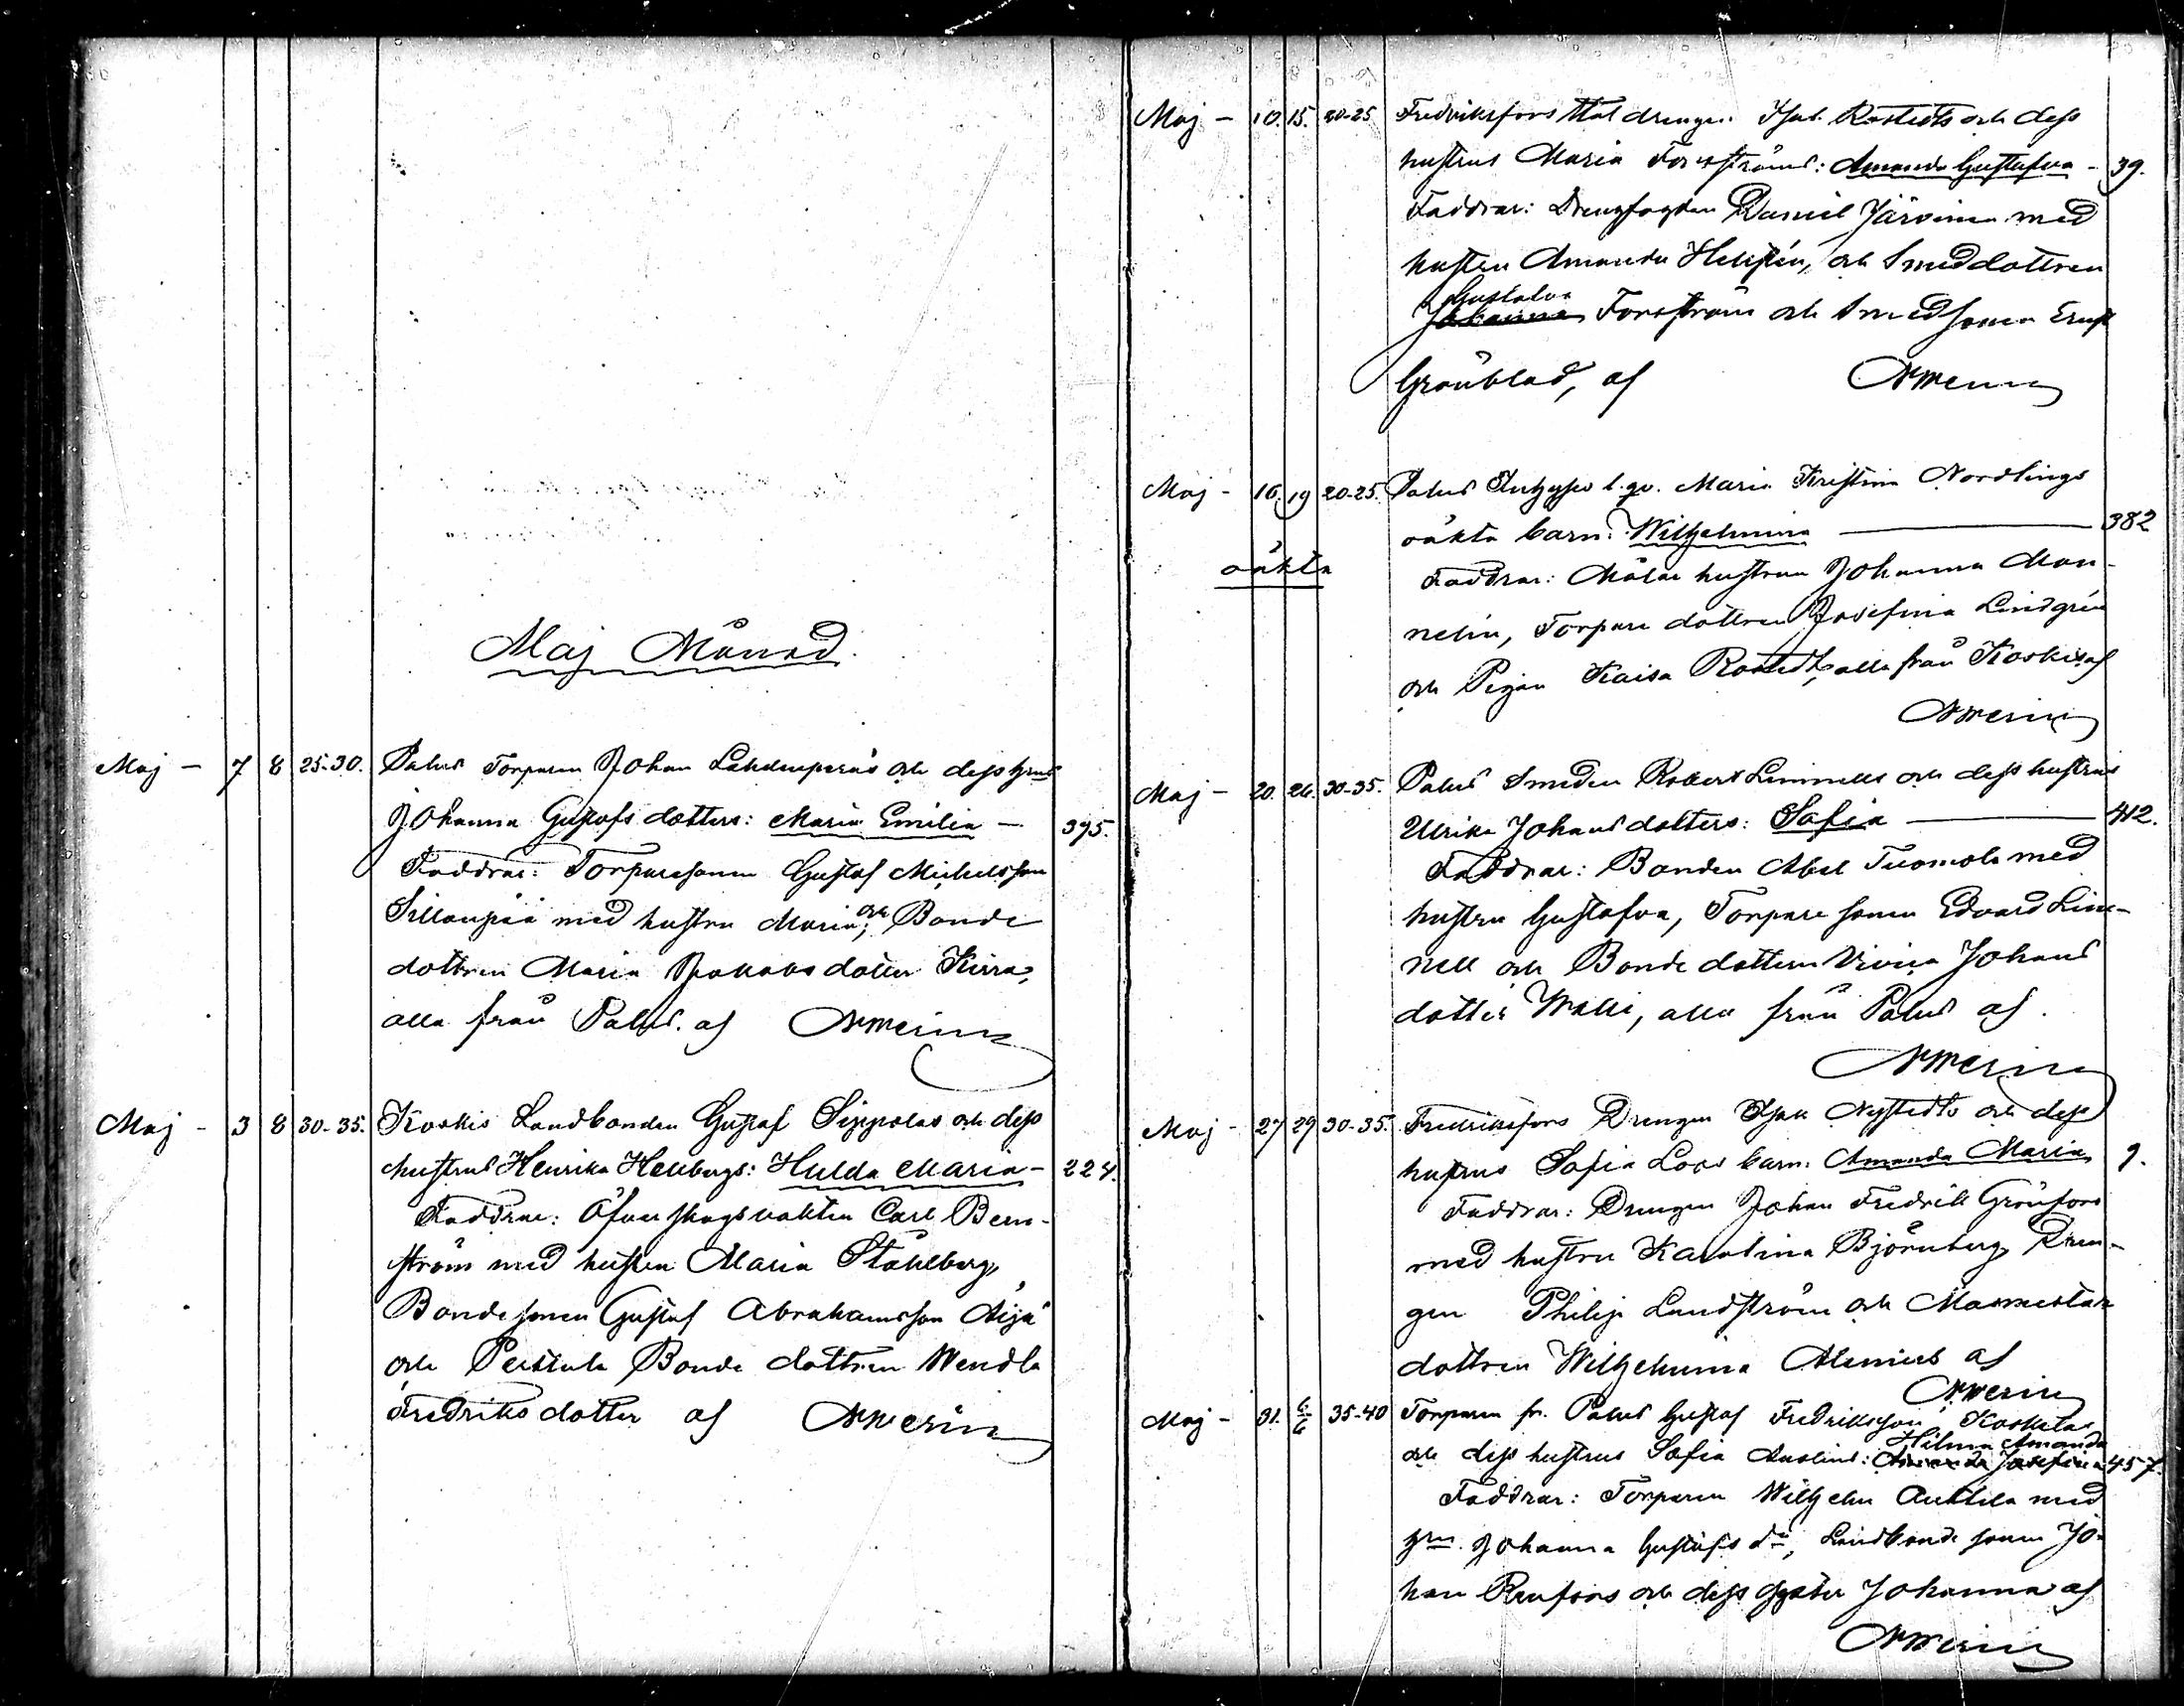 Maj Månad.
Maj - 7 8 25-30. Palus Torparen Johan Lähdenperäs och dess hrus
Johanna Gustafs dotters: Maria Emilia - 395.
Faddrar: Torparesonen Gustaf Michelsson
Sillanpää med hustru Maria, och Bonde
dottren Maria Jakobs dotter Kirra,
alla från Palus. af
Maj - 3 8 30-35. Koskis Landbonden Gustaf Sippolas och dess
hustrus Henrika Hellbergs: Hulda Maria - 224.
Faddrar: Öfver skogsvakten Carl Bern-
ström med hustru Maria Ståhlberg,
Bondesonen Gustaf Abrahamsson Äijä
och Peitula Bonde dottren Wendla
Fredriks dotter af
Maj - 10. 15. 20-25 Fredriksfors Stal drengen Isak Rostedts och dess
hustrus Maria Forsströms: Amanda Gustafva - 39.
Faddrar: Drengfogden Daniel Järvinen med
hustru Amanda Hellstén, och Smeddottren
Gustafva
Johanna Forsström och Smedsonen Ernst
Grönblad, af
Maj - 16. 19 20-25. Palus l. qv. Maria Kristina Nordlings
oäkta barn: Wilhelmina 382
oäkta
Faddrar: Målar hustrun Johanna Man-
nelin, Torpare dottren Josefina Lindgrén
och Pigan Kaisa Rostedt, alla från Koskis af
Maj - 20. 26. 30-35. Palus Smeden Robert Linnells och dess hustrus
Ulrika Johans dotters: Sofia 412.
Faddrar: Bonden Abel Tuomola med
hustru Gustafva, Torpare sonen Edvard Lin-
nell och Bonde dottern Viviva Johans
dotter Walli, alla från Palus af.
Maj - 27 29 30-35. Fredriksfors Drengen Isak Nystedts och dess
hustrus Sofia Loos barn: Amanda Maria 9.
Faddrar: Drengen Johan Fredrik Grönfors
med hustru Karolina Björnberg, Dren-
gen Philip Lundström och
dottren Wilhelmina Alenius af
Maj - 31. 6/6 35-40 Torparen fr. Palus Gustaf Fredriksson Koskelas
Hilma Amanda
och dess hustrus Sofia: Amanda Josefina 457.
Faddrar: Torparen Wilhelm Anttila med
hru Johanna Gustafs dr, Landbonde sonen Jo-
han Renfors och dess syster Johanna af